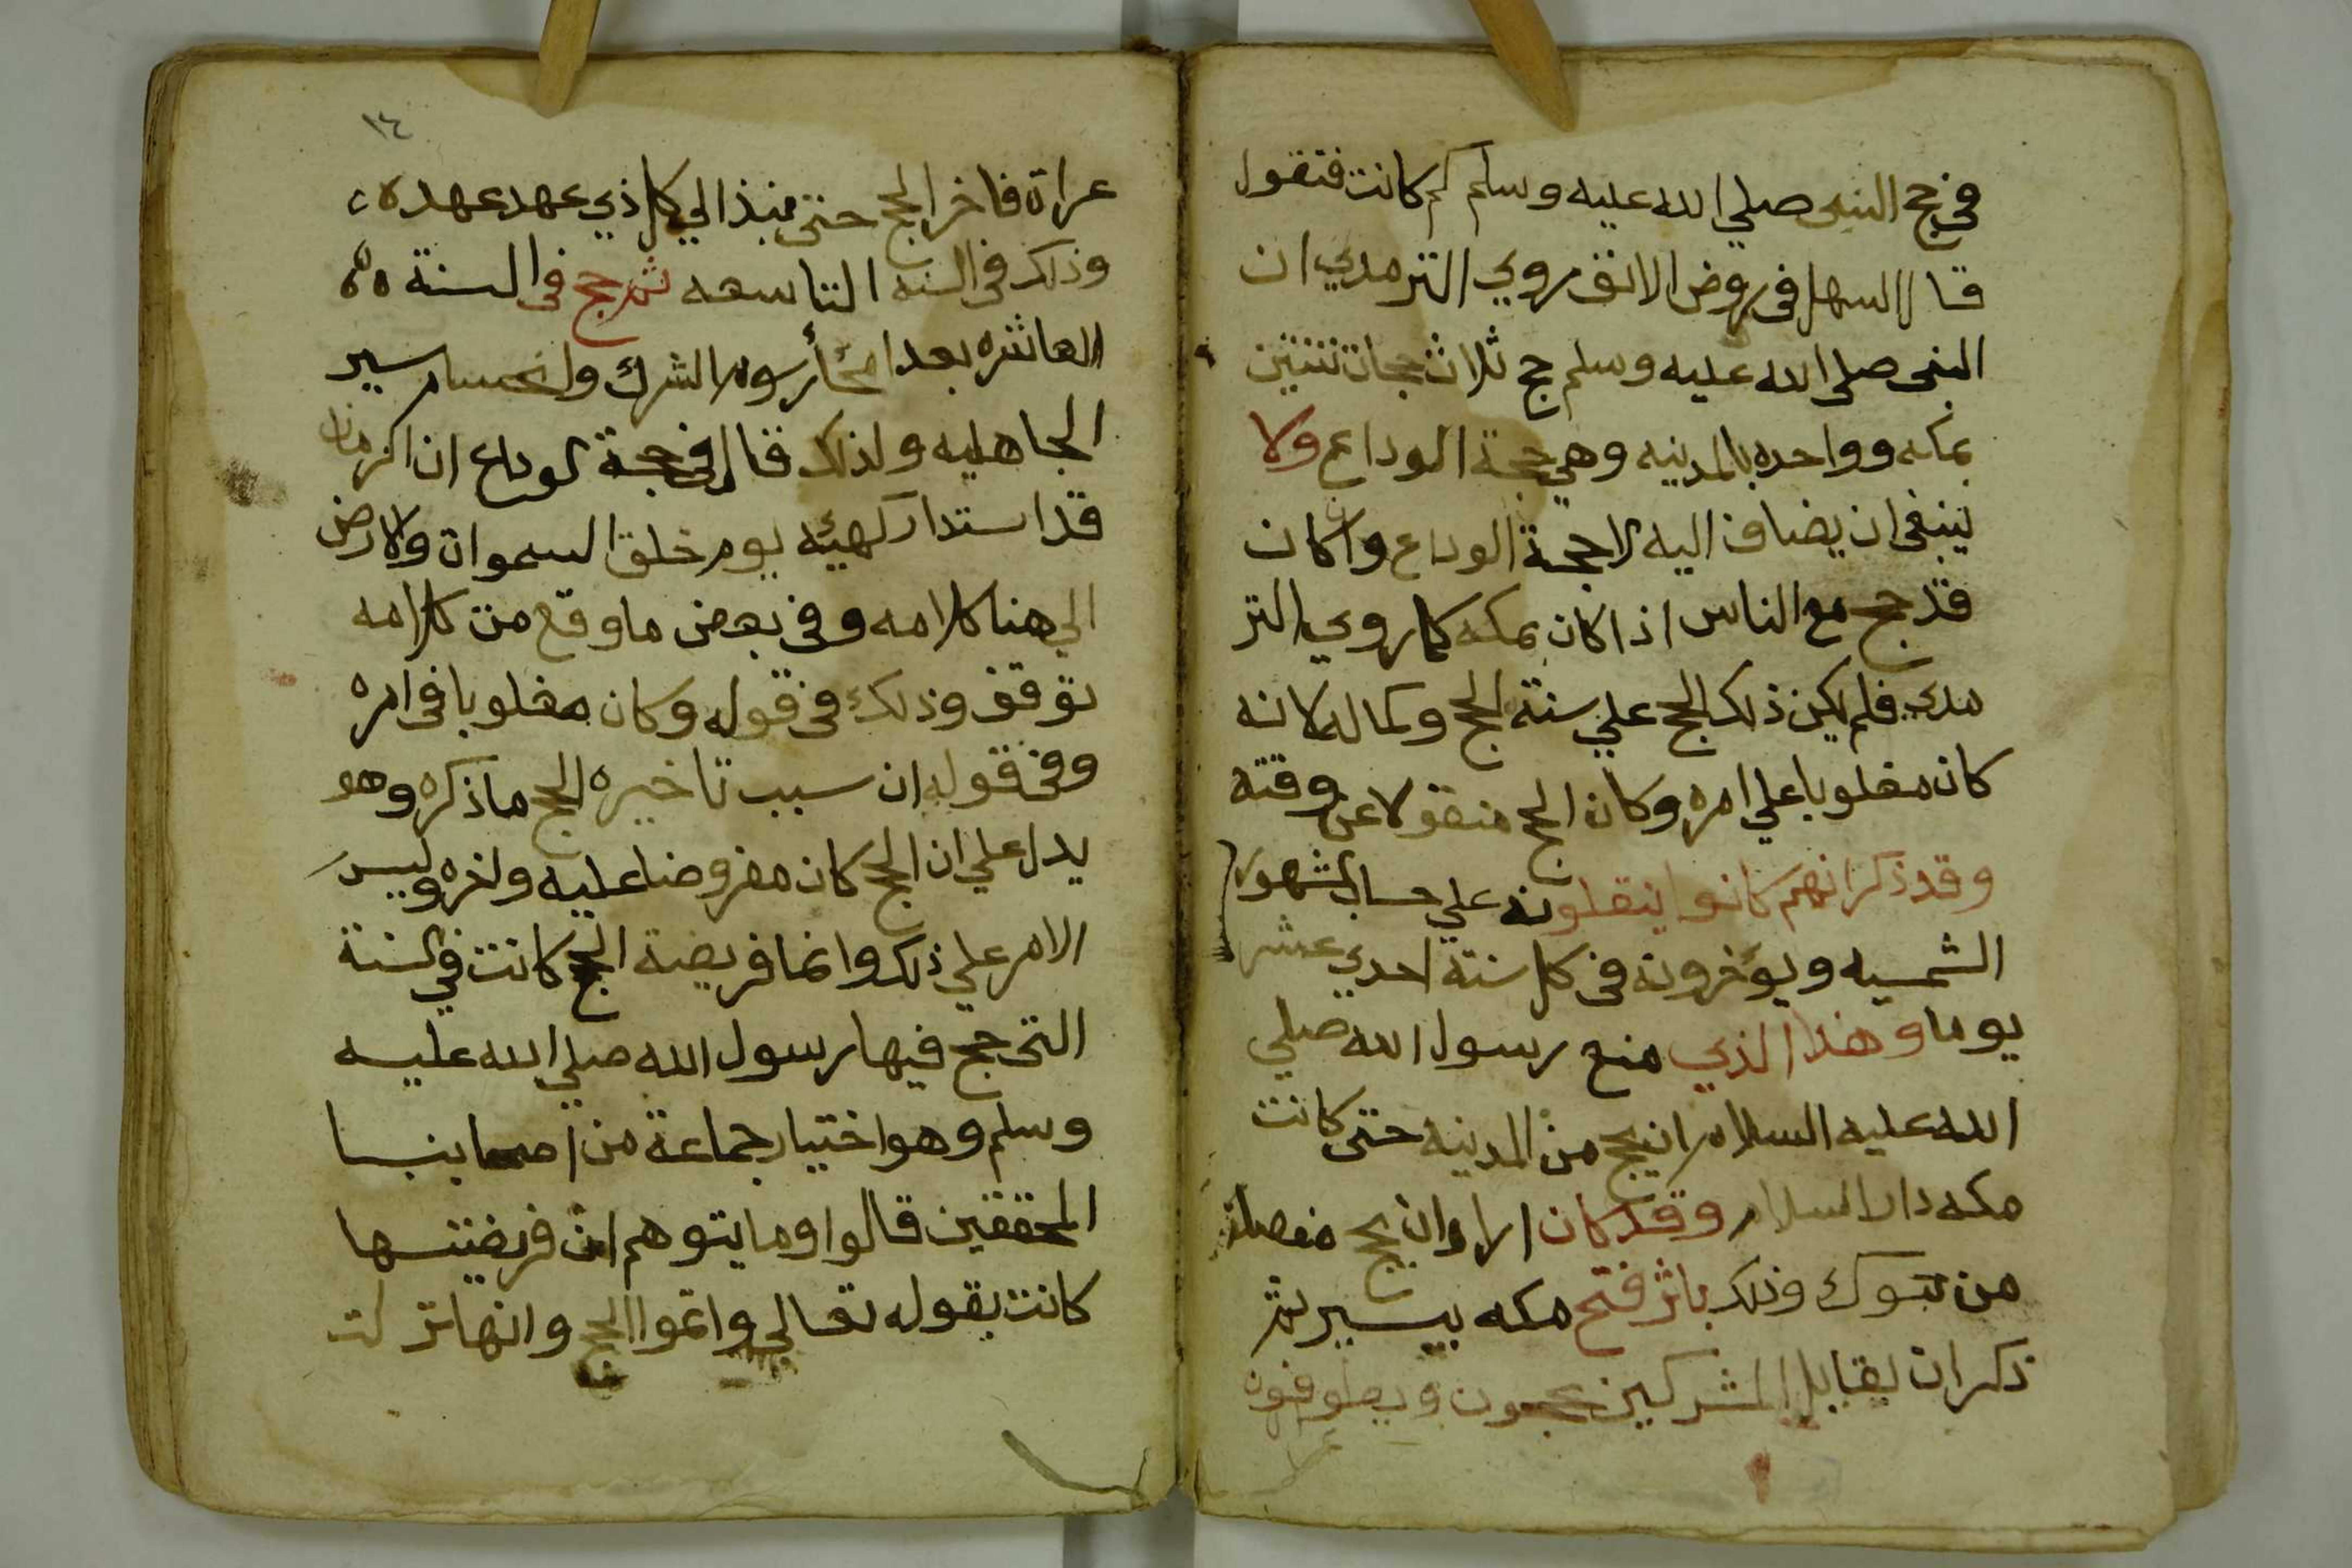 في حج النبى صلي الله عليه وسلم كم كانت فنقول
قال السهل في روض الانف روي الترمدي ان
النبى صلي الله عليه وسلم حج ثلاث حجات ثنتين
بمكه وواحده بالمدينه وهي حجة الوداع ولا
ينبغى ان يضاف اليه الا حجة الوداع وان كان
قد حج مع الناس اذا كان بمكه كما روي التر
مدي فلم يكن ذلك الحج علي سنة الحج وكماله لانه
كان مغلوبا علي امره وكان الحج منقولا عن وقته
وقد ذكر انهم كانوا ينقلونه علي حساب الشهور
الشمسيه ويؤخرونه في كل سنة احدي عشر
يوما وهذا الذي منع رسول الله صلي
الله عليه السلام ان يحج من المدينه حتى كانت
مكه دار السلام وقد كان اراد ان يحج
من تبوك وذلك باثر فتح مكه بيسير ثم
ذكر ان بقايا المشركين يحجون ويطوفون
١٤
عراة فاخر الحج حتى نبذ الي كل ذي عهد عهده
وذلك في السنه التاسعه ثم حج في السنة
العاشره بعد امحا رسوم الشرك وانحسام سير
الجاهليه ولذلك قال في حجة الوداع ان الزمان
قد استدار كهيئه يوم خلق السموات والارض
الي هنا كلامه وفي بعض ما وقع من كلامه
توقف وذلك في قوله وكان مغلوبا في امره
وفي قوله ان سبب تاخيره الحج ما ذكره وهو
يدل علي ان الحج كان مفروضا عليه واخره وليس
الامر علي ذلك وانما فريضة الحج كانت في السنة
التى حج فيها رسول الله صلي الله عليه
وسلم وهو اختيار جماعة من اصحابنا
المحققين قالوا وما يتوهم ان فريضتها
كانت بقوله تعالي واتموا الحج وانها نزلت